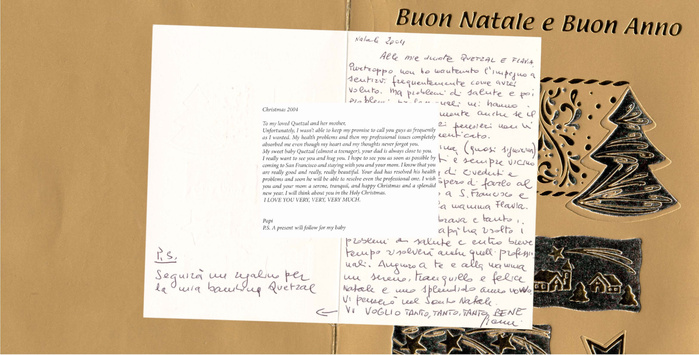 Buon Natale e Buon Anno
Natale 2004
Alle mie QUETZAL E FLAVIA
Purtroppo non ho mantenuto l'impegno di
sentirvi frequentemente come avrei
voluto. Ma problemi di salute e poi
Christmas 2004
To my loved Quetzal and her mother,
Unfortunately, I wasn't able to keep my promise to call you guys as frequently
as I wanted. My health problems and then my professional issues completely
absorbed me even though my heart and my thoughts never forget you.
My sweet baby Quetzal (almost a teenager), your dad is always close to you.
I really want to see you and hug you. I hope to see you as soon as possible by
coming to San Francisco and staying with you and your mom. I know that you
are really good and really, really beautiful. Your dad has resolved his health
problems and soon he will be able to resolve even the professional one. I wish
you and your mom a serene, tranquil, and happy Christmas and a splendid
new year. I will think about you in the Holy Christmas.
I LOVE YOU VERY, VERY, VERY MUCH.
Papi
P.S. A present will follow for my baby
mente anche se il
pensieri non vi
(quasi signorina)
e sempre vicino
di vederti e
spero di farlo al
a S. Francisco e
la mamma Flavia.
brava e tanto
risolto i
problemi di salute e entro breve
tempo risolverà anche quelli professio
nali. Auguro a te e alla mamma
un sereno, tranquillo e felice
Natale e uno splendido anno nuovo
Vi penserò nel Santo Natale.
VI VOGLIO TANTO, TANTO, TANTO BENE
P.S.
Seguirà un regalino per
la mia bambina Quetzal